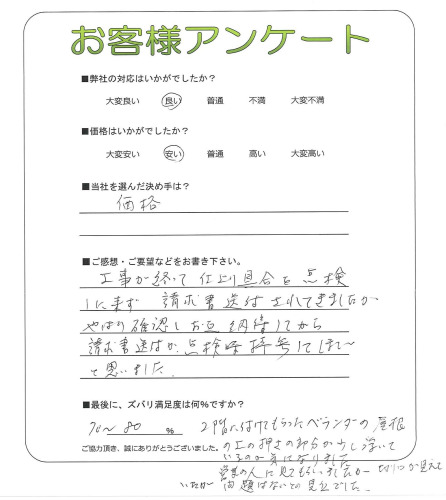 お客様アンケート
■弊社の対応はいかがでしたか?
大変良い 良い 普通 不満 大変不満
■価格はいかがでしたか?
大変安い 安い 普通 高い 大変高い
■当社を選んだ決め手は?
価格
■ご感想・ご要望などをお書き下さい。
工事が終って仕上り具合を点検
に来ず 請求書送付されてきましたが
やはり確認しお互納得してから
請求書送付か、点検時持参してほしい
と思いました。
■最後に、ズバリ満足度は何%ですか?
70〜80 %
2階に付けてもらったベランダーの屋根
の上の押さの部分が少し浮いて
いるのが気になりました
営業の人に見てもらいましたが
問題はないとの見立でした。
ご協力頂き、誠にありがとうございました。